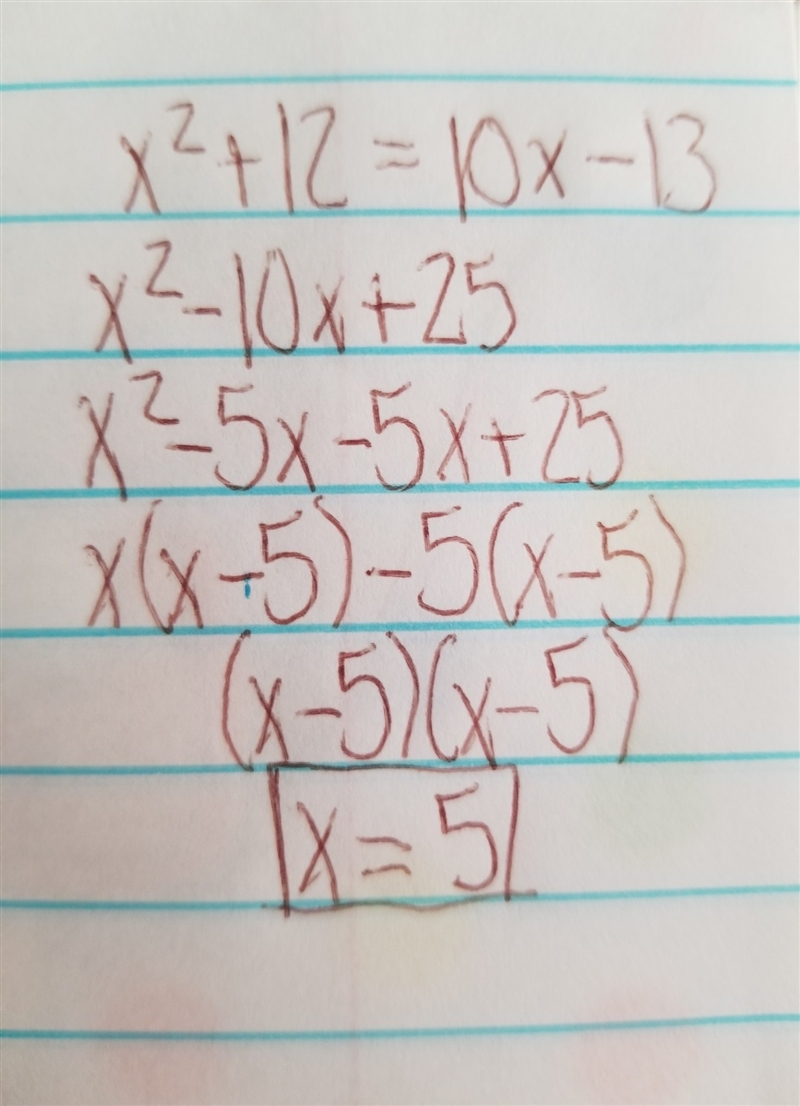 x² + 12 = 10x - 13
x² - 10x + 25
x² - 5x - 5x + 25
x(x - 5) - 5(x - 5)
(x - 5)(x - 5)
x = 5